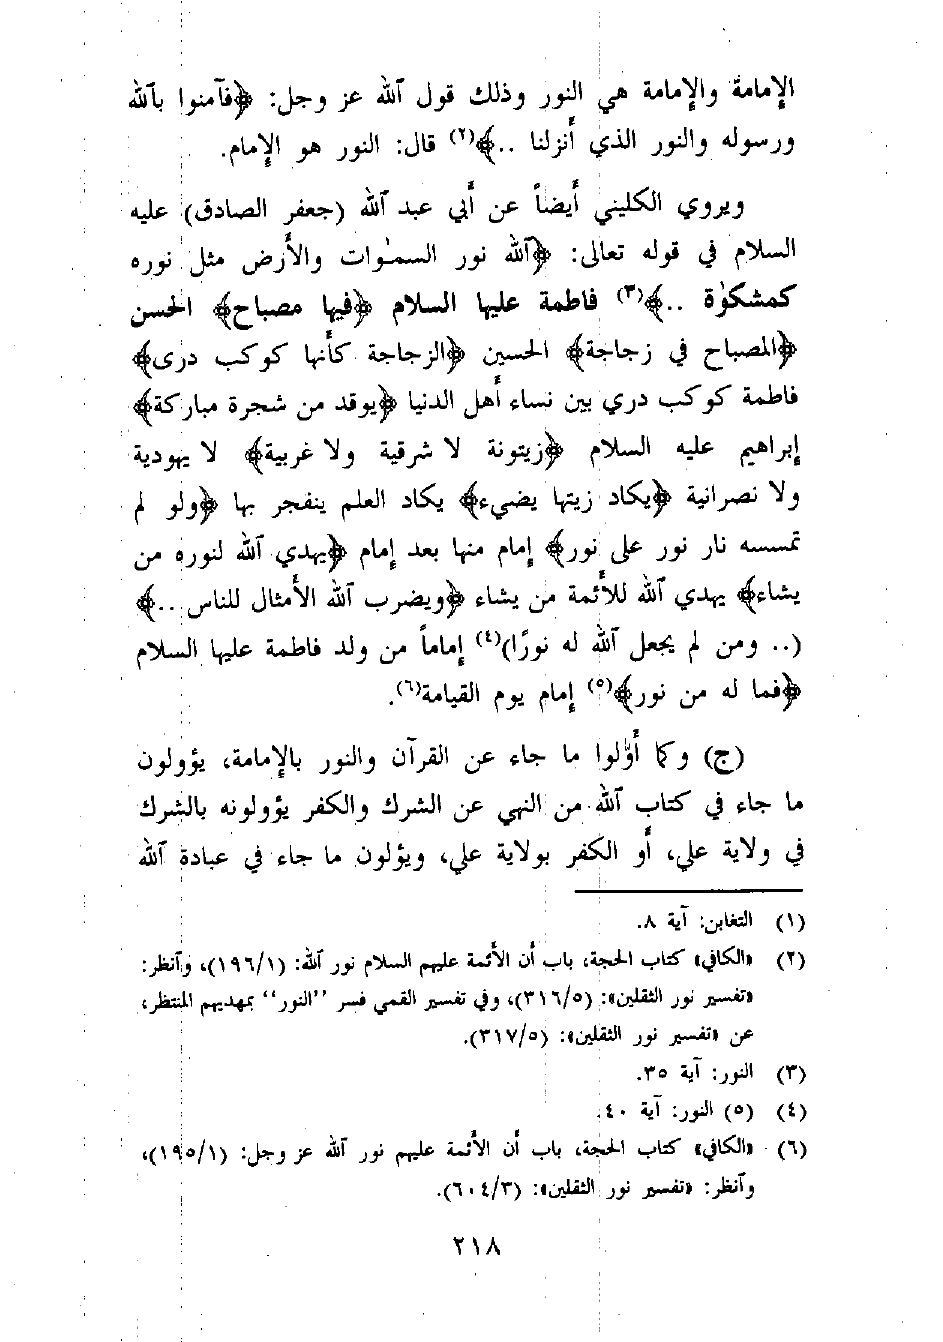 الإمامة والإمامة هي النور وذلك قول ٱلله عز وجل: ﴿فآمنوا بٱلله
ورسوله والنور الذي أنزلنا ..﴾(٢) قال: النور هو الإمام.
ويروي الكليني أيضاً عن أبي عبد ٱلله (جعفر الصادق) عليه
السلام في قوله تعالى: ﴿ٱلله نور السمٰوات والأرض مثل نوره
كمشكوٰة ..﴾(٣) فاطمة عليها السلام ﴿فيها مصباح﴾ الحسن
﴿المصباح في زجاجة﴾ الحسين ﴿الزجاجة كأنها كوكب درى﴾
فاطمة كوكب دري بين نساء أهل الدنيا ﴿يوقد من شجرة مباركة﴾
إبراهيم عليه السلام ﴿زيتونة لا شرقية ولا غربية﴾ لا يهودية
ولا نصرانية ﴿يكاد زيتها يضيء﴾ يكاد العلم ينفجر بها ﴿ولو لم
تمسسه نار نور على نور﴾ إمام منها بعد إمام ﴿يهدي ٱلله لنوره من
يشاء﴾ يهدي ٱلله للأئمة من يشاء ﴿ويضرب ٱلله الأمثال للناس ...﴾
(.. ومن لم يجعل ٱلله له نورًا)(٤) إماماً من ولد فاطمة عليها السلام
﴿فما له من نور﴾(٥) إمام يوم القيامة(٦).
(ج) وكما أوّلوا ما جاء عن القرآن والنور بالإمامة، يؤولون
ما جاء في كتاب ٱلله من النهي عن الشرك والكفر يؤولونه بالشرك
في ولاية علي، أو الكفر بولاية علي، ويؤلون ما جاء في عبادة ٱلله
(١) التغابن: آية ٨.
(٢) «الكافي» كتاب الحجة، باب أن الأئمة عليهم السلام نور ٱلله: (١٩٦/١)، وٱنظر:
«تفسير نور الثقلين»: (٣١٦/٥)، وفي تفسير القمي فسر "النور" بمهديهم المنتظر،
عن «تفسير نور الثقلين»: (٣١٧/٥).
(٣) النور: آية ٣٥.
(٤) (٥) النور: آية ٤٠.
(٦) «الكافي» كتاب الحجة، باب أن الأئمة عليهم نور ٱلله عز وجل: (١٩٥/١)،
وٱنظر: «تفسير نور الثقلين»: (٦٠٤/٣).
٢١٨